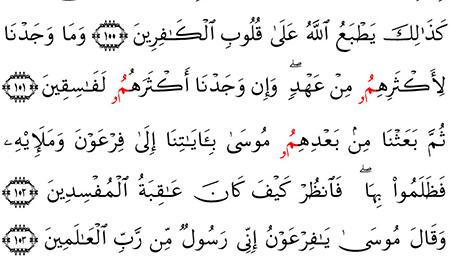 كَذَٰلِكَ يَطْبَعُ اللَّهُ عَلَىٰ قُلُوبِ الْكَٰفِرِينَ ١٠٠ وَمَا وَجَدْنَا
لِأَكْثَرِهِمُۥ مِنْ عَهْدٍۖ وَإِن وَجَدْنَا أَكْثَرَهُمُۥ لَفَٰسِقِينَ ١٠١
ثُمَّ بَعَثْنَا مِنۢ بَعْدِهِمُۥ مُوسَىٰ بِـَٔايَٰتِنَا إِلَىٰ فِرْعَوْنَ وَمَلَإِيْهِۦ
فَظَلَمُوا۟ بِهَاۖ فَانظُرْ كَيْفَ كَانَ عَٰقِبَةُ الْمُفْسِدِينَ ١٠٢
وَقَالَ مُوسَىٰ يَٰفِرْعَوْنُ إِنِّى رَسُولٌ مِّن رَّبِّ الْعَٰلَمِينَ ١٠٣